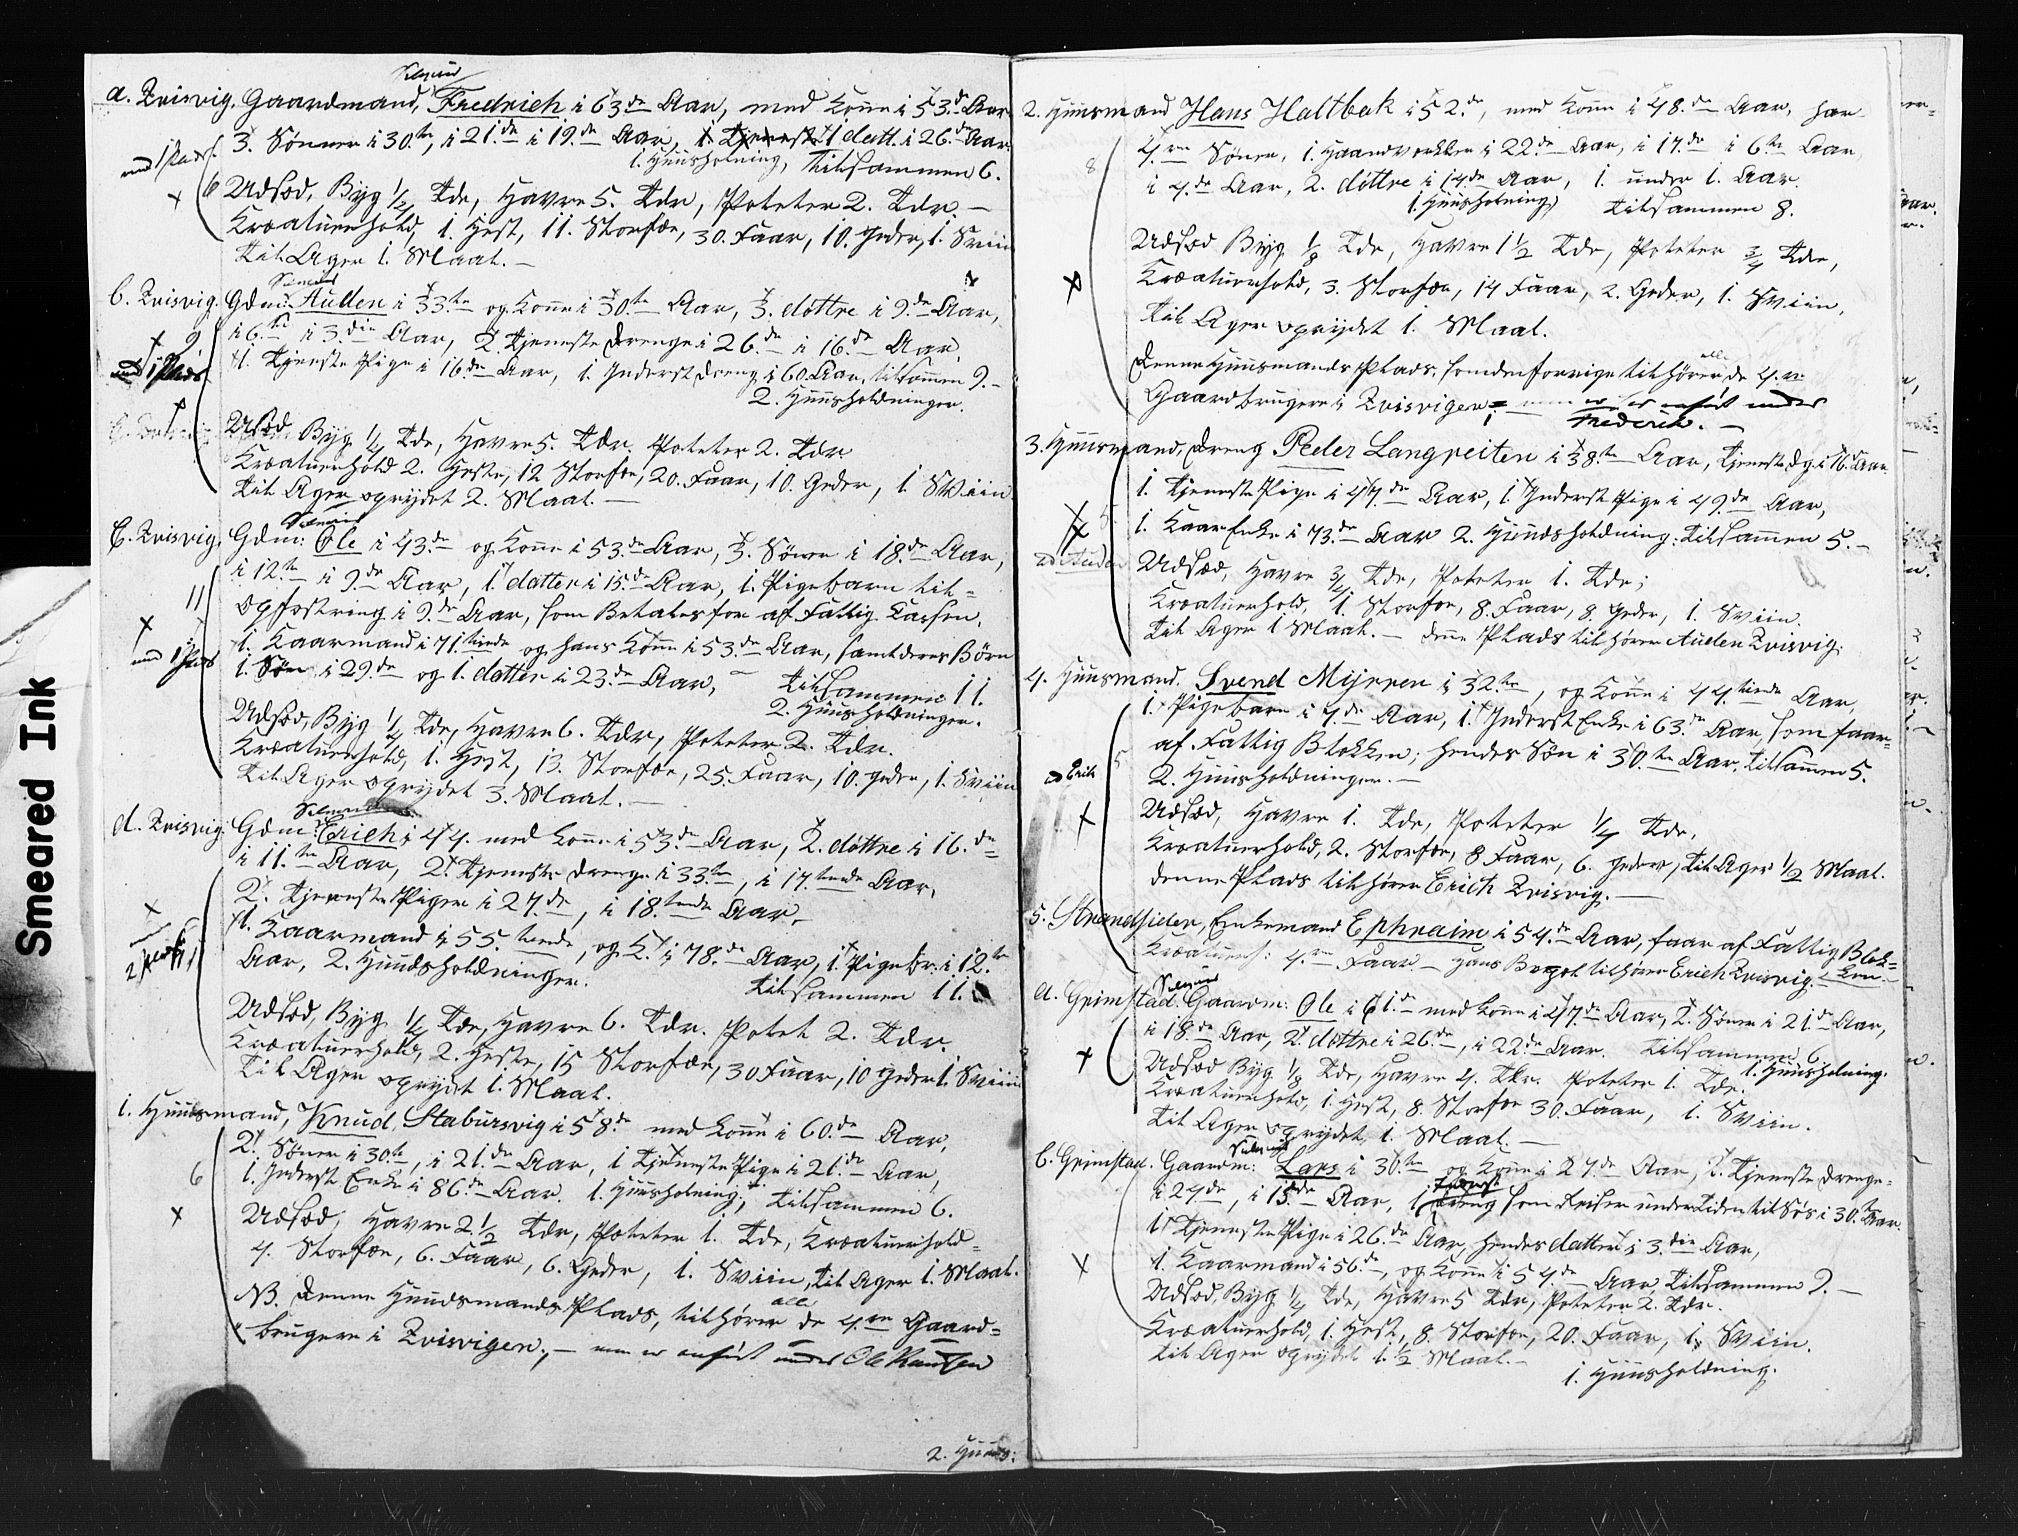 Smeared Ink
a. Qvisvig, Gaardmand, Fredrich i 63de Aar, med Kone i 53de Aar
3. Sönner i 30te, i 21de i 19de Aar, 1 datt. i 26de Aar
1. Huusholning, tilsammen 6.
6 Udsæd, Byg 1/2 Tde, Havre 5. Tdr, Poteter 2. Tdr. —
Kreaturerhold, 1. Hest, 11. Storfæ, 30. Faar, 10. Geder, 1. Sviin
til Ager 1. Maal. —
b. Qvisvig. Gdm: Auden i 33te og Kone i 30te Aar, 3. döttre i 9de Aar,
i 6te i 3die Aar, 2. Tjeneste Drenge i 26de i 16de Aar,
1. Tjeneste Pige i 16de Aar, 1. Inderst Dreng i 60. Aar, tilsammen 9. —
9
2. Huusholdninger.
Udsæd Byg 1/4 Tde, Havre 5. Tdr. Poteter 2. Tdr
Kreaturerhold 2. Heste, 12 Storfæ, 20. Faar, 10. Geder, 1. Sviin
til Ager oprydet 2. Maal. —
c. Qvisvig, Gdm: Ole i 43de og Kone i 53de Aar, 3. Sönner i 18de Aar,
i 12te i 9de Aar, 1. datter i 15de Aar, 1. Pigebarn til=
11 Opfostring i 9de Aar, som Betales for af Fattig Cassen,
1. Kaarmand i 71. tinde og hans Kone i 53de Aar, samt deres Börn
med 1 Plads
1. Sön i 29de og 1. datter i 23de Aar, — tilsammen 11.
2. Huusholdninger.
Udsæd, Byg 1/4 Tde, Havre 6. Tdr, Poteter 2. Tdr.
Kreaturerhold, 1. Hest, 13. Storfæ, 25. Faar, 10. Geder, 1. Sviin
til Ager oprydet 3. Maal. —
d. Qvisvig: Gdm: Erich i 44. med Kone i 53de Aar, 2. döttre i 16.de
i 11.te Aar, 2. Tjeneste Drenge i 33te, i 17.tende Aar,
2. Tjeneste Piger i 27.de, i 18.tende Aar,
1. Kaarmand i 55.tende, og K. i 78.de Aar, 1. Pigebr. i 12.te
Aar, 2. Huusholdninger. tilsammen 11.
Udsæd, Byg 1/4 Tde, Havre 6. Tdr. Potet 2. Tdr.
Kreaturerhold, 2. Heste, 15 Storfæ, 30 Faar, 10 Geder 1. Sviin
til Ager oprydet 1. Maal.
1. Huusmand, Knud Stabursvig i 58.de med Kone i 60.de Aar,
2. Sönner i 30te, i 21.de Aar, 1 Tjeneste Pige i 21.de Aar,
6 1. Inderst Enke i 86.de Aar. 1. Huusholning, tilsammen 6.
Udsæd, Havre 2 1/2 Tdr, Poteter 1. Tde, Kreaturerhold=
4. Storfæ, 6. Faar, 6. Geder, 1. Sviin, til Ager 1. Maal.
NB. Denne Huusmands Plads, tilhörer alle de 4.re Gaard=
brugere i Qvisvigen, — men er anfört under Ole Knutsen
2. Huus:
2. Huusmand Hans Haltbak i 52.de, med Kone i 48.de Aar, har
4.re Söner, 1. Haandverkker i 22.de Aar, i 17.de i 6te Aar
8 i 4.de Aar, 2. döttre i 14.de Aar, 1. under 1. Aar.
1. Huusholning, tilsammen 8.
Udsæd Byg 1/8 Tde, Havre 1 1/2 Tde, Poteter 3/4 Tde,
Kreaturerhold, 3. Storfæ, 14 Faar, 2. Geder, 1. Sviin,
til Ager oprydet 1. Maal.
Denne Huusmands Plads, som den forrige tilhörer alle de 4.re
Gaardbrugere i Qvisvigen, — men er her anfört under
Frederik. —
3. Huusmand, Dreng Peder Langreiten i 38.te Aar, Tjeneste Dg. i 16. Aar
1. Tjeneste Pige i 47.de Aar, 1. Inderst Pige i 49.de Aar,
5. 1. Kaar Enke i 73.de Aar 2. Huusholdning: tilsammen 5. —
ad Auden Udsæd, Havre 3/4 Tde, Poteter 1. Tde;
Kreaturerhold, 1. Storfæ, 8. Faar, 8. Geder, 1. Sviin.
til Ager 1 Maal. — Denne Plads tilhörer Auden Qvisvig.
4. Huusmand. Svend Myrren i 32.te, og Kone i 44.tinde Aar,
1. Pigebarn i 4.de Aar, 1. Inderst Enke i 63.de Aar, som faar=
af Fattig Blokken; hendes Sön i 30.te Aar, tilsammen 5.
ad Erik 5 2. Huusholdninger. —
Udsæd, Havre 1. Tde, Poteter 1/4 Tde,
Kreaturerhold, 2. Storfæ, 8 Faar, 6. Geder, til Ager 1/2 Maal.
denne Plads tilhörer Erich Qvisvig. —
5. Strandsider, Enkemand Ephraim i 54.de Aar, faar af Fattig Blok=
ken.
Kreaturerh: 4.re Faar — hans Bopæl tilhörer Erich Qvisvig. —
a. Grimstad. Gaardm: Ole i 61.de med Kone i 47.de Aar, 2. Söner i 21.de Aar,
i 18.de Aar, 2. döttre i 26.de, i 22.de Aar. tilsammen 6
1. Huusholning.
Udsæd Byg 1/8 Tde, Havre 4. Tdr. Poteter 1. Tde.
Kreaturerhold, 1. Hest, 8. Storfæ 30. Faar, 1. Sviin.
til Ager oprydet 1. Maal. —
b. Grimstad. Gaardm: Lars i 30.te og Kone i 27.de Aar, 2. Tjeneste Drenge=
i 24de, i 15.de Aar, 1. Inderst Dreng som Reiser undertiden til Söes i 30.te Aar.
1. Tjeneste Pige i 26.de Aar, hendes datter i 3.die Aar,
1. Kaarmand i 56.de, og Kone i 54.de Aar, tilsammen 9. —
Udsæd, Byg 1/4 Tde, Havre 5 Tdr, Poteter 2. Tdr.
Kreaturerhold, 1. Hest, 8. Storfæ, 20. Faar, 1. Sviin.
til Ager oprydet 1. 1/2 Maal. —
1. Huusholdning.